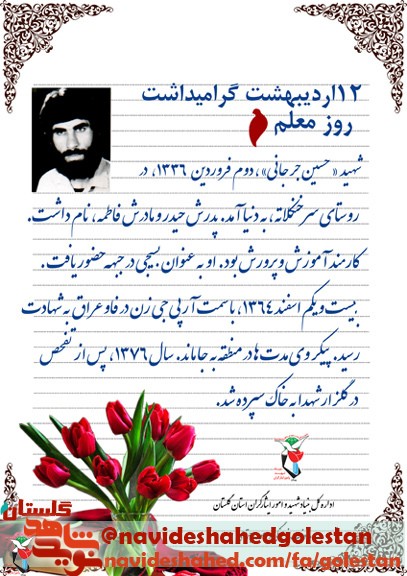 ۱۲اردیبهشت گرامیداشت
روز معلم
شهید «حسین جرجانی»، دوم فروردین ۱۳۳۶، در
روستای سرخنکلاته، به دنیا آمد. پدرش حیدر و مادرش فاطمه، نام داشت.
کارمند آموزش و پرورش بود. او به عنوان بسیجی در جبهه حضور یافت.
بیست و یکم اسفند ۱۳۶۴، با سمت آر پی جی زن در فاو عراق به شهادت
رسید. پیکر وی مدت ها در منطقه به جا ماند. سال ۱۳۷۶، پس از تفحص
در گلزار شهدا به خاک سپرده شد.
اداره کل بنیاد شهید و امور ایثارگران استان گلستان
گلستان
نوید شاهد
@navideshahedgolestan
navideshahed.com/fa/golestan